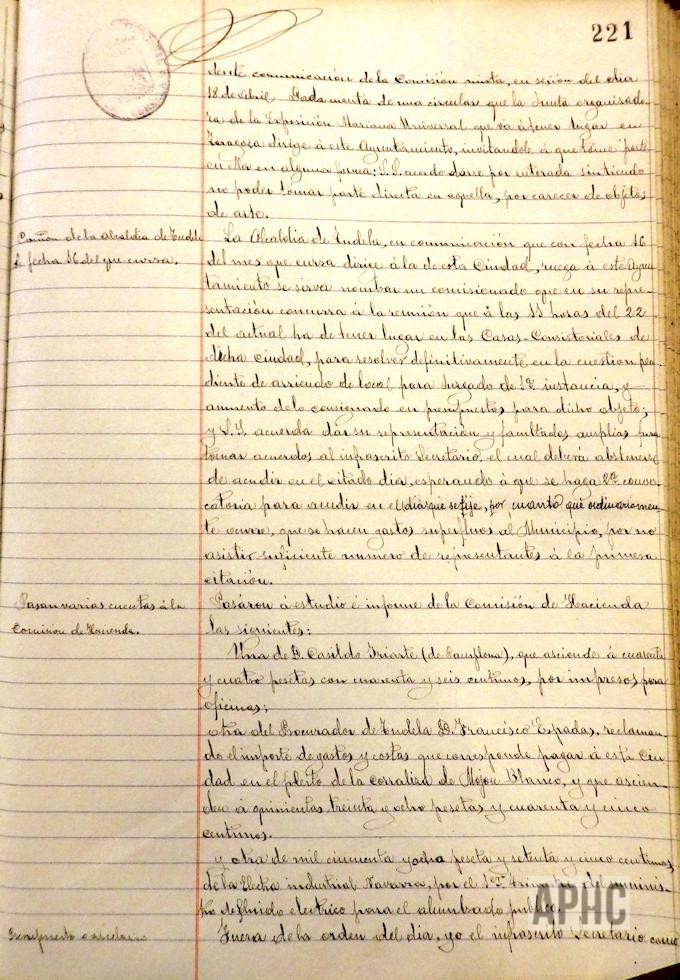 221
dente comunicación de la Comisión mixta, en sesión del día
18 de Abril. Dada cuenta de una circular que la Junta organizado-
ra de la Exposición Mariana Universal que vá á tener lugar en
Zaragoza dirige á este Ayuntamiento, invitandole á que tome parte
en ella en alguna forma: S.S. acordó darse por enterada sintiendo
no poder tomar parte directa en aquella, por carecer de objetos
de arte.
Comón. de la alcaldía de Tudela
de fecha 16 del que cursa.
La Alcaldía de Tudela, en comunicación que con fecha 16
del mes que cursa dirige á la de esta Ciudad, ruega á este Ayun-
tamiento se sirva nombrar un comisionado que en su repre-
sentación concurra á la reunión que á las 11 horas del 22
del actual ha de tener lugar en las Casas-Consistoriales de
dicha ciudad, para resolver definitivamente en la cuestion pen-
diente de arriendo de local para Juzgado de 1ª instancia, y
aumento de lo consignado en presupuestos para dicho objeto;
y S.S. acuerda dar su representación y facultades amplias para
tomar acuerdos al infrascrito Secretario, el cual deberá abstenerse
de acudir en el citado dia, esperando á que se haga 2ª convo-
catoria para acudir en el dia que se fije, por cuanto que ordinariamen-
te ocurre, que se hacen gastos superfluos al Municipio, por no
asistir suficiente numero de representantes á la primera
citación.
Pasan varias cuentas á la
Comisión de Hacienda.
Pasáron á estudio é informe de la Comisión de Hacienda
las siguientes:
Una de D. Casildo Iriarte (de Pamplona), que asciende á cuarenta
y cuatro pesetas con cuarenta y seis centimos, por impresos para
oficinas;
otra del Procurador de Tudela D. Francisco Espadas, reclaman-
do el importe de gastos y costas que corresponde pagar á esta Ciu-
dad en el pleito de la corraliza de Mojon Blanco, y que ascien-
den á quinientas treinta y ocho pesetas y cuarenta y cinco
centimos.
y otra de mil cincuenta y ocho peseta y setenta y cinco centimos
de la Electra industrial Navarra, por el 1er trimestre del suminis-
tro de fluido electrico para el alumbrado publico.
Fuera de la orden del dia, yo el infrascrito Secretario como
APHC